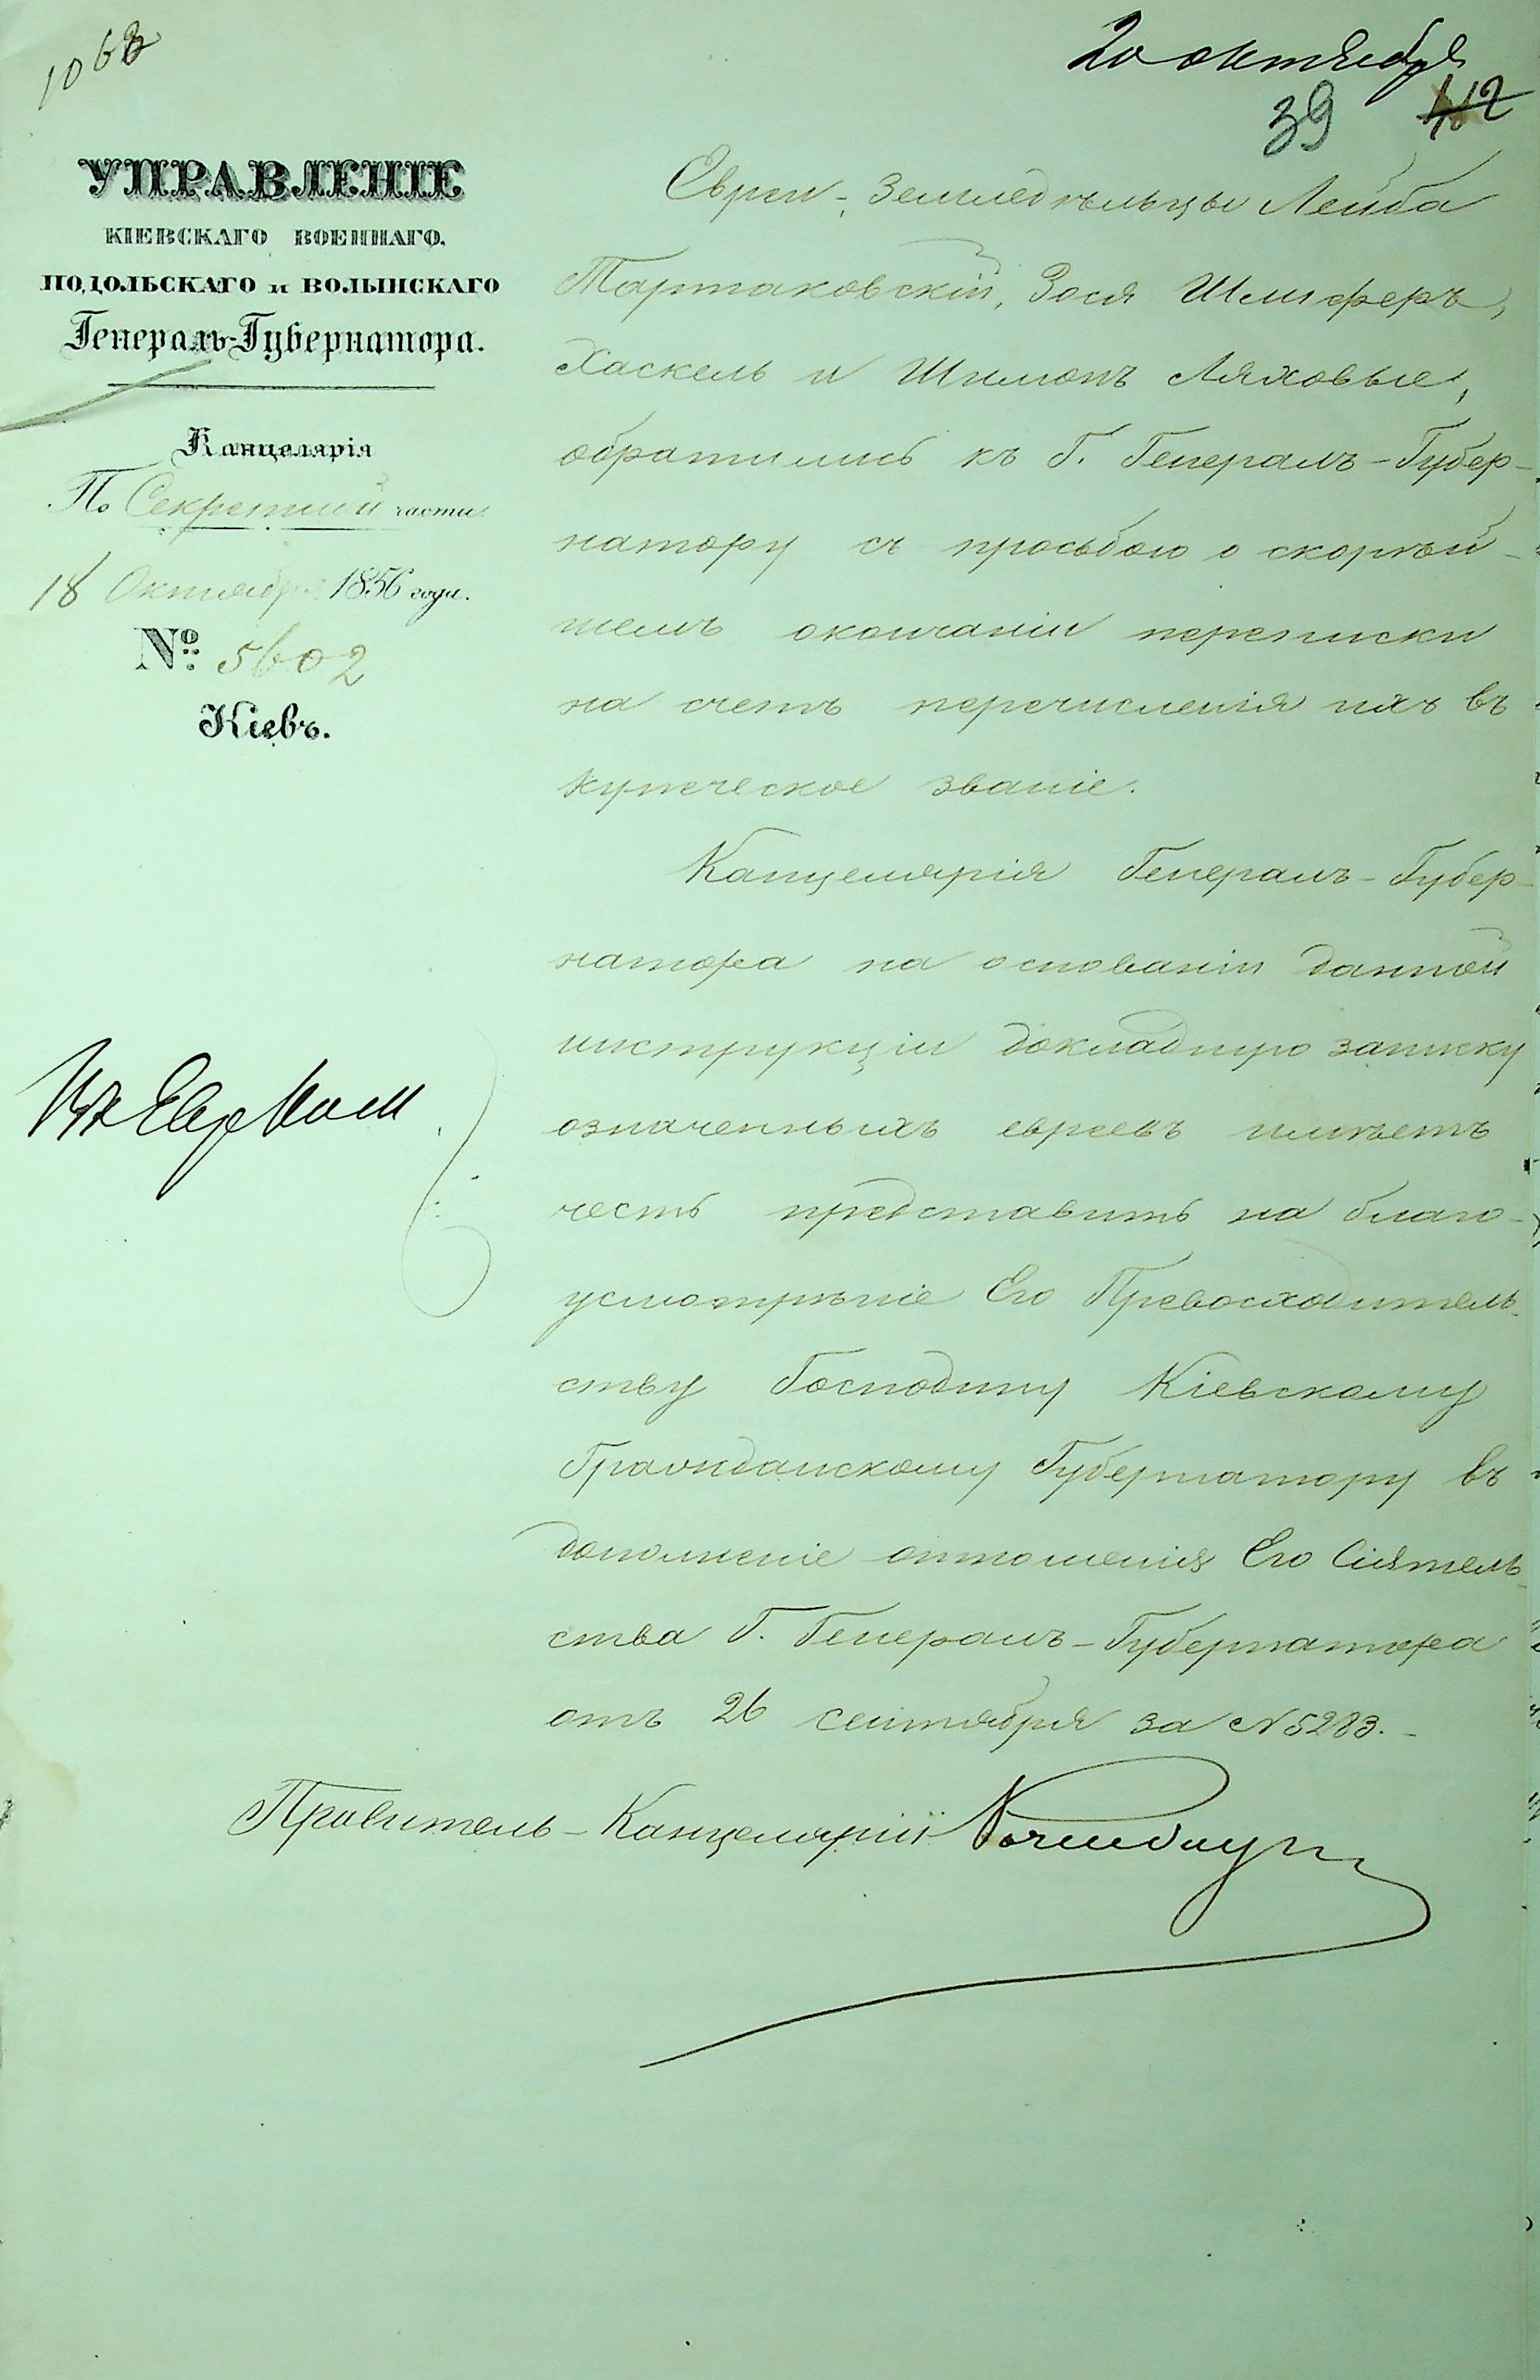 1068
20 октября
39 112
УПРАВЛЕНІЕ
КІЕВСКАГО ВОЕННАГО,
ПОДОЛЬСКАГО и ВОЛЫНСКАГО
Генералъ-Губернатора.
Канцелярія
По Секретной части
18 Октября 1856 года.
№ 5602
Кіевъ.
Евреи-земледѣльцы Лейба
Тартаковскій, Зося Шлиферъ,
Хаскель и Шимонъ Ляховые,
обратились къ Г. Генералъ-Губер-
натору съ просьбою о скорѣй-
шемъ окончаніи переписки
на счетъ перечисленія ихъ въ
купеческое званіе.
Канцелярія Генералъ-Губер-
натора на основаніи данной
инструкціи докладную записку
означенныхъ евреевъ имѣетъ
честь представить на благо-
усмотрѣніе Его Превосходитель-
ству Господину Кіевскому
Гражданскому Губернатору въ
дополненіе отношенія Его Сіятель-
ства Г. Генералъ-Губернатора
отъ 26 сентября за № 5283.
Правитель-Канцеляріи